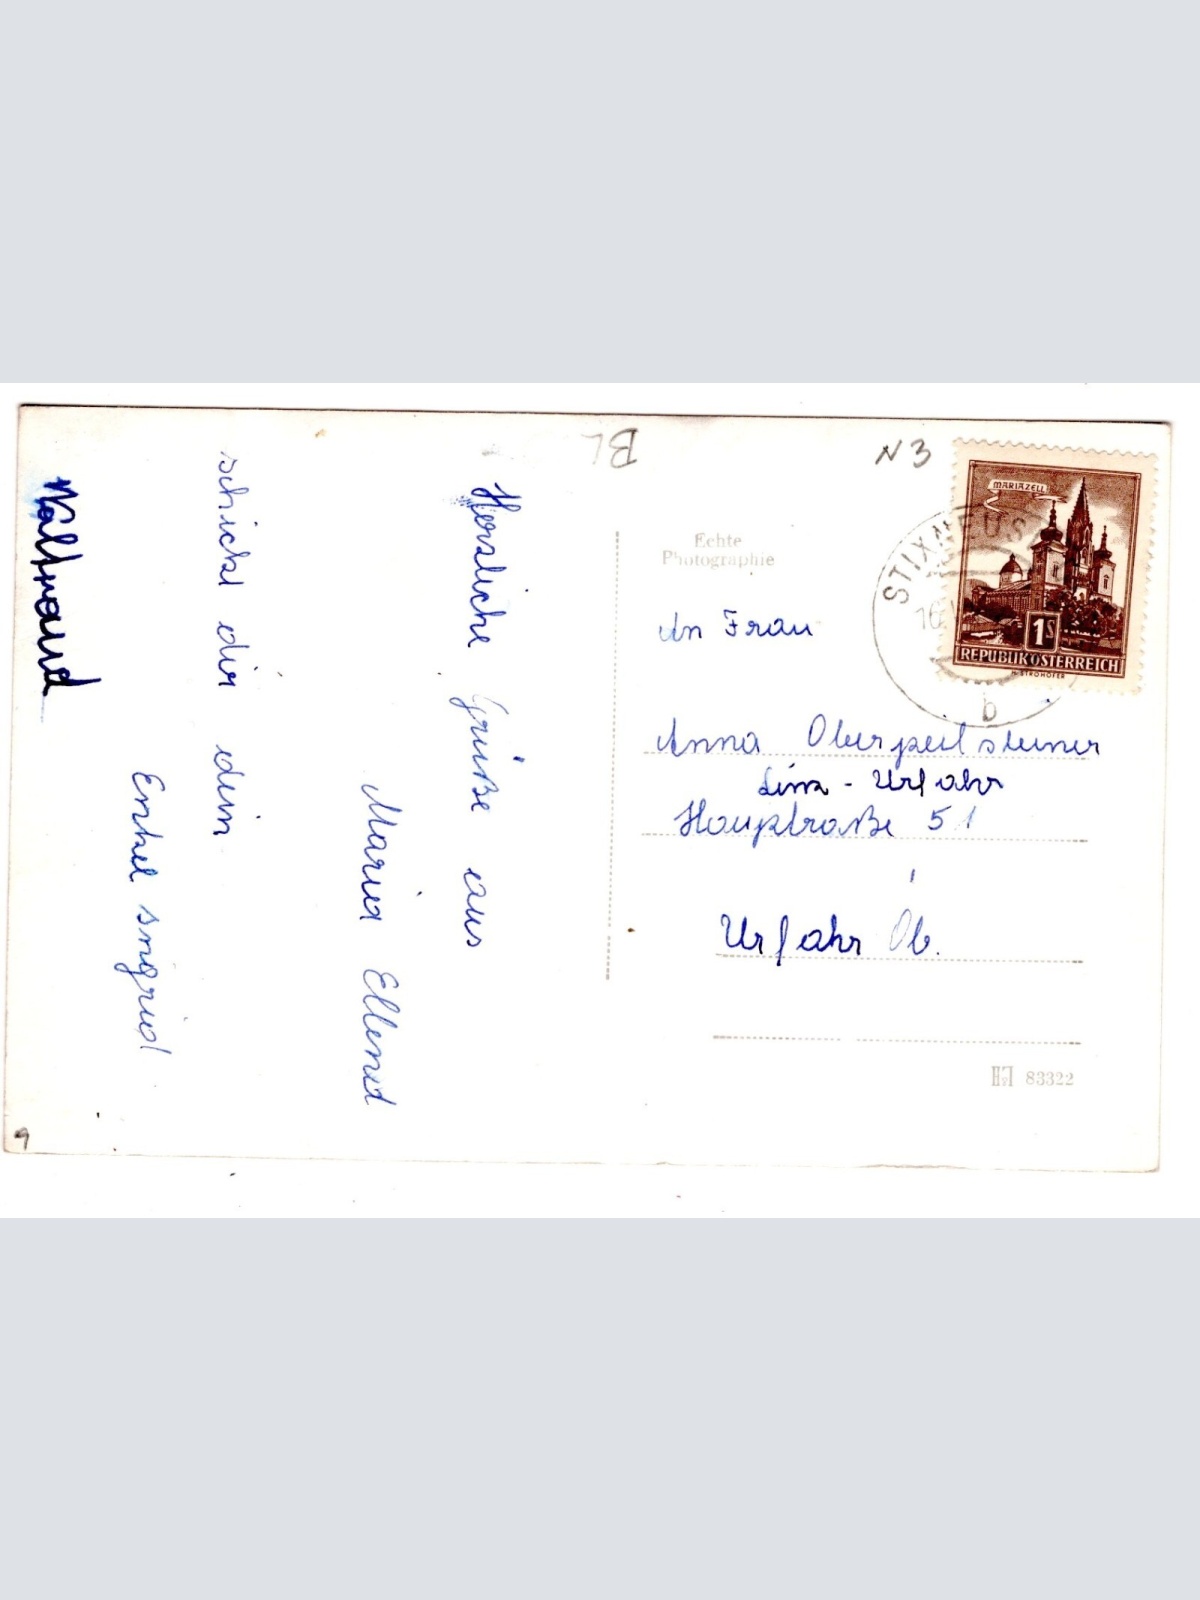 BL
N 3
MARIAZELL
1S
REPUBLIK ÖSTERREICH
STIXNEUS
b
Echte
Photographie
An Frau
Anna Oberpeilsteiner
Linz - Urfahr
Hauptraße 51
Urfahr Ob.
83322
Herzliche Grüße aus
Maria Ellend
schickt dir dein
Enkel Sngrid
Waltraud
9